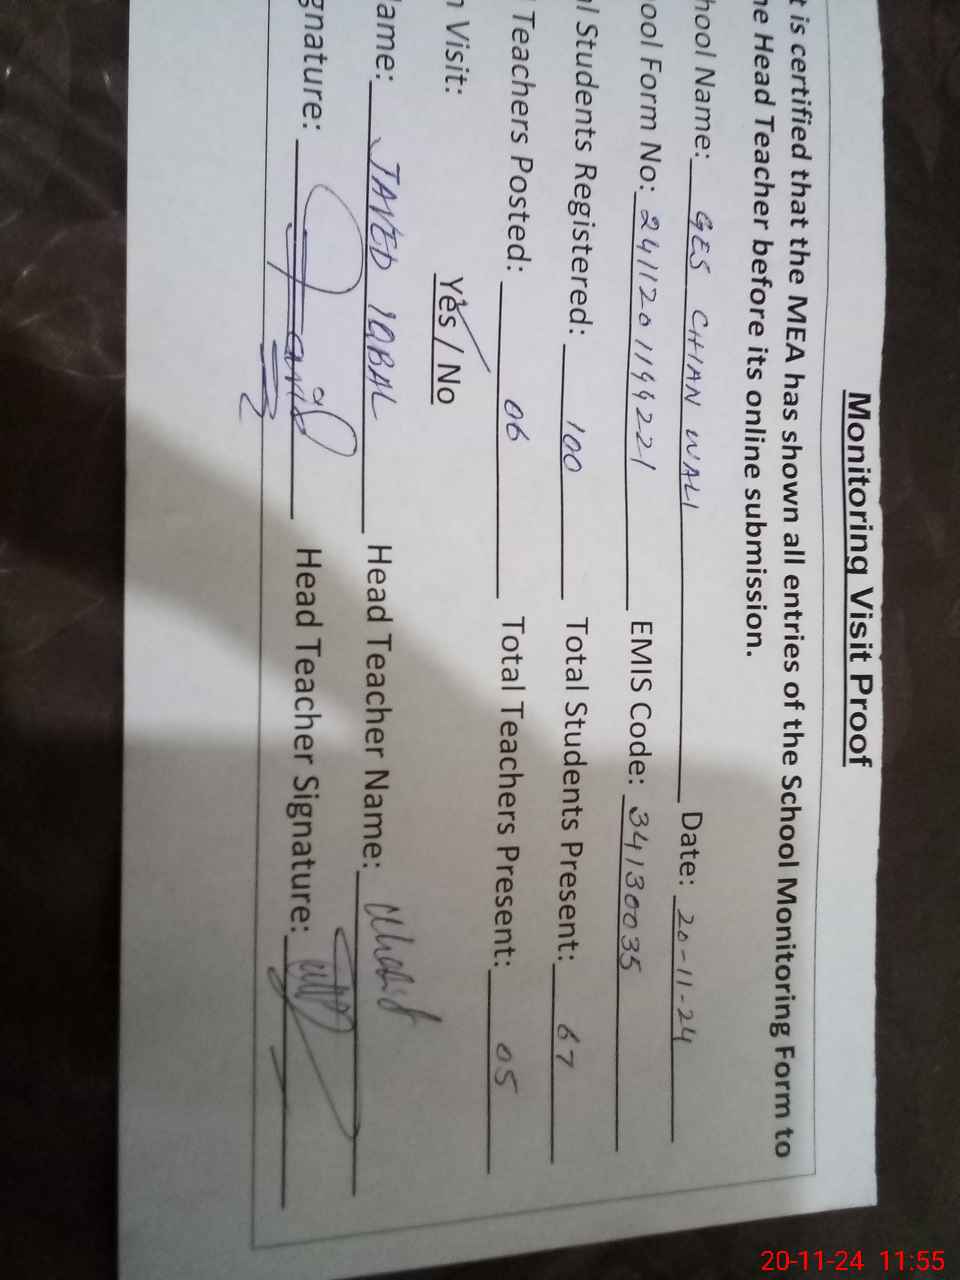 Monitoring Visit Proof
t is certified that the MEA has shown all entries of the School Monitoring Form to
he Head Teacher before its online submission.
hool Name: GES CHIAN WALI Date: 20-11-24
ool Form No: 241120119221 EMIS Code: 34130035
al Students Registered: 100 Total Students Present: 67
Teachers Posted: 06 Total Teachers Present: 05
n Visit: Yes / No
ame: JAVED IQBAL Head Teacher Name:
gnature: Javed Head Teacher Signature:
20-11-24 11:55